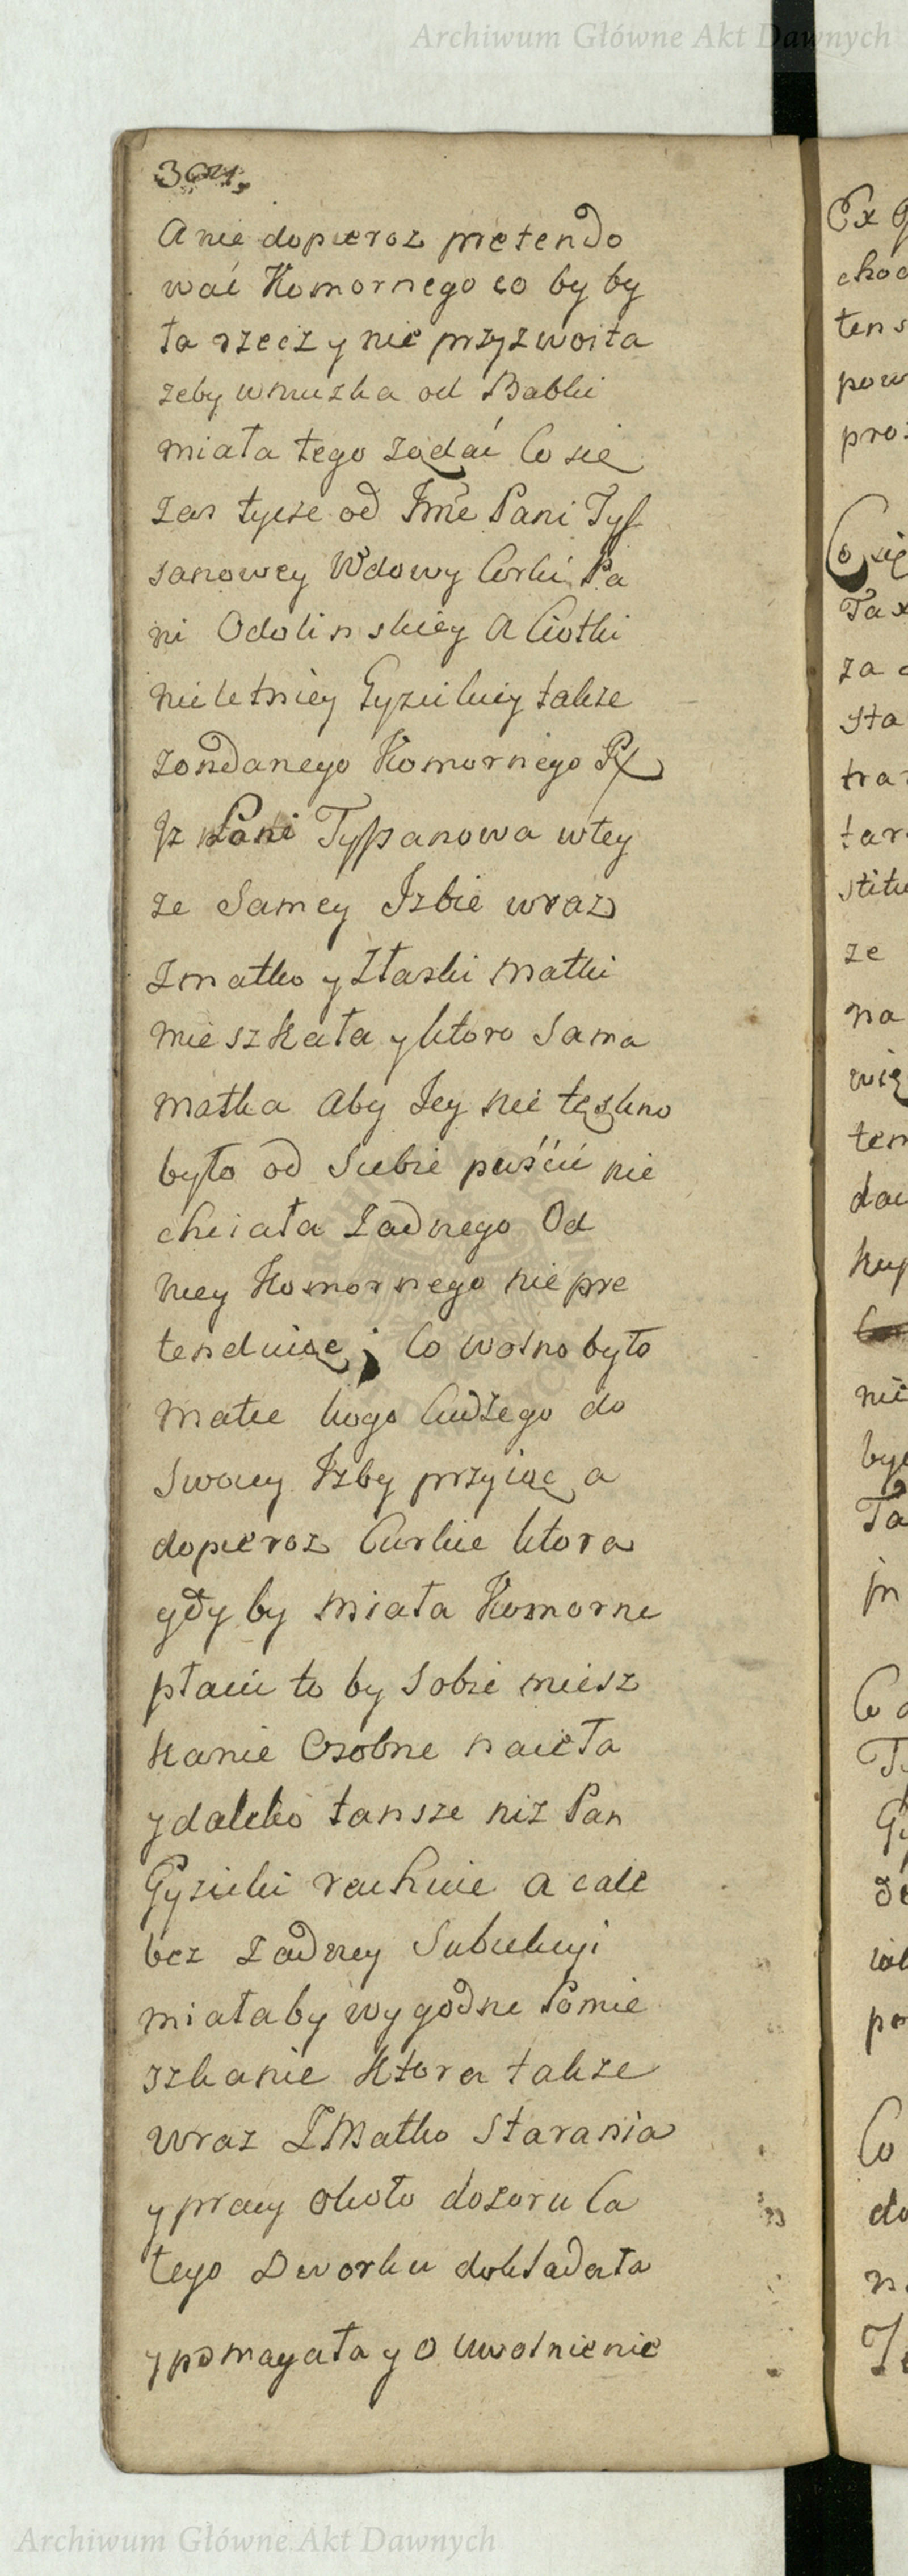 Archiwum Główne Akt Dawnych
304.
A nie dopieroz pretendo
wać Komornego co by by
ła rzecz y nie przyzwoita
zeby wnuszka od Babki
miała tego ządać Co się
zas tycze od Jmć Pani Tys
sanowey Wdowy Corki Pa
ni Odolinskiey A Ciotki
nieletniey Gyzickiey takze
ządanego Komornego
Jz Pani Tyssanowa wtey
ze Samey Jzbie wraz
z matko y Złaski matki
mieszkała y ktoro Sama
matka Aby Jey nie tęskno
było od Siebie puścić nie
chciała Zadnego Od
niey Komornego nie pre
tenduiąc; Co wolno było
matce kogo Cudzego do
Swoiey Jzby przyiąc a
dopieroz Curkie ktora
gdy by miała Komorne
płacić to by Sobie miesz
kanie Osobne naieła
y daleko tansze niz Pan
Gyzicki rachuie a cale
bez Zadney Subiekcyi
miałaby wygodne Pomie
szkanie Ktora takze
wraz Z Matko Starania
y pracy Około dozoru Ca
łego Dworku dokładała
y pomagała y o Uwolnienie
Ex
Co się
ze
na
Co
do
Archiwum Główne Akt Dawnych